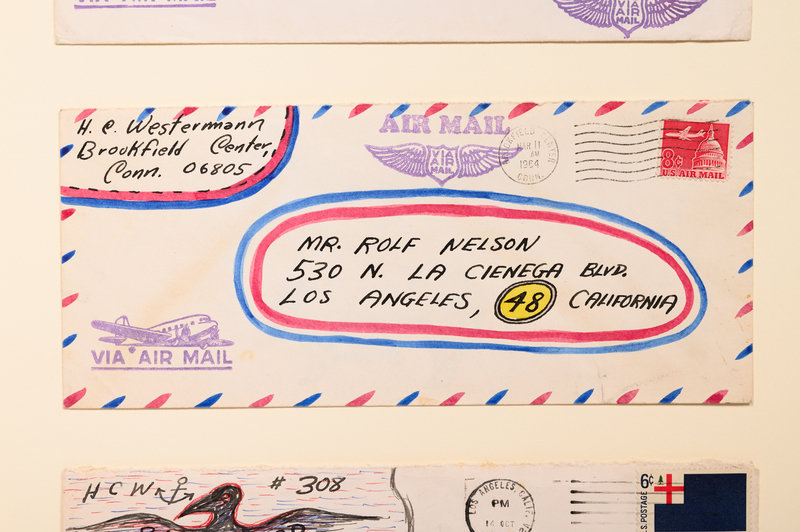 VIA AIR MAIL
VIA
AIR
MAIL
H. C. Westermann
Brookfield Center,
Conn. 06805
AIR MAIL
VIA
AIR
MAIL
BROOKFIELD CENTER
MAR 11
AM
1964
CONN.
8¢
U.S. AIR MAIL
MR. ROLF NELSON
530 N. LA CIENEGA BLVD.
LOS ANGELES, 48 CALIFORNIA
VIA AIR MAIL
H C W # 308
LOS ANGELES, CALIF.
PM
14 OCT
6¢
U.S. POSTAGE